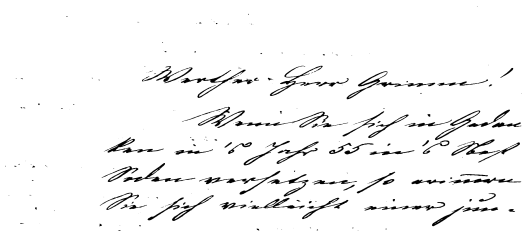 Werther Herr Grimm!
Wenn Sie sich in Gedan
ken in's Jahr 55 in's
versetzen, so erinnern
Sie sich vielleicht einer jun-